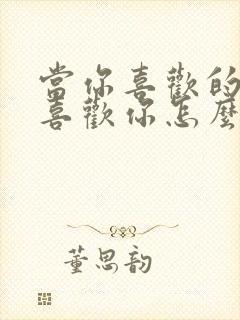 當你喜歡的
喜歡你怎麼
董思韵